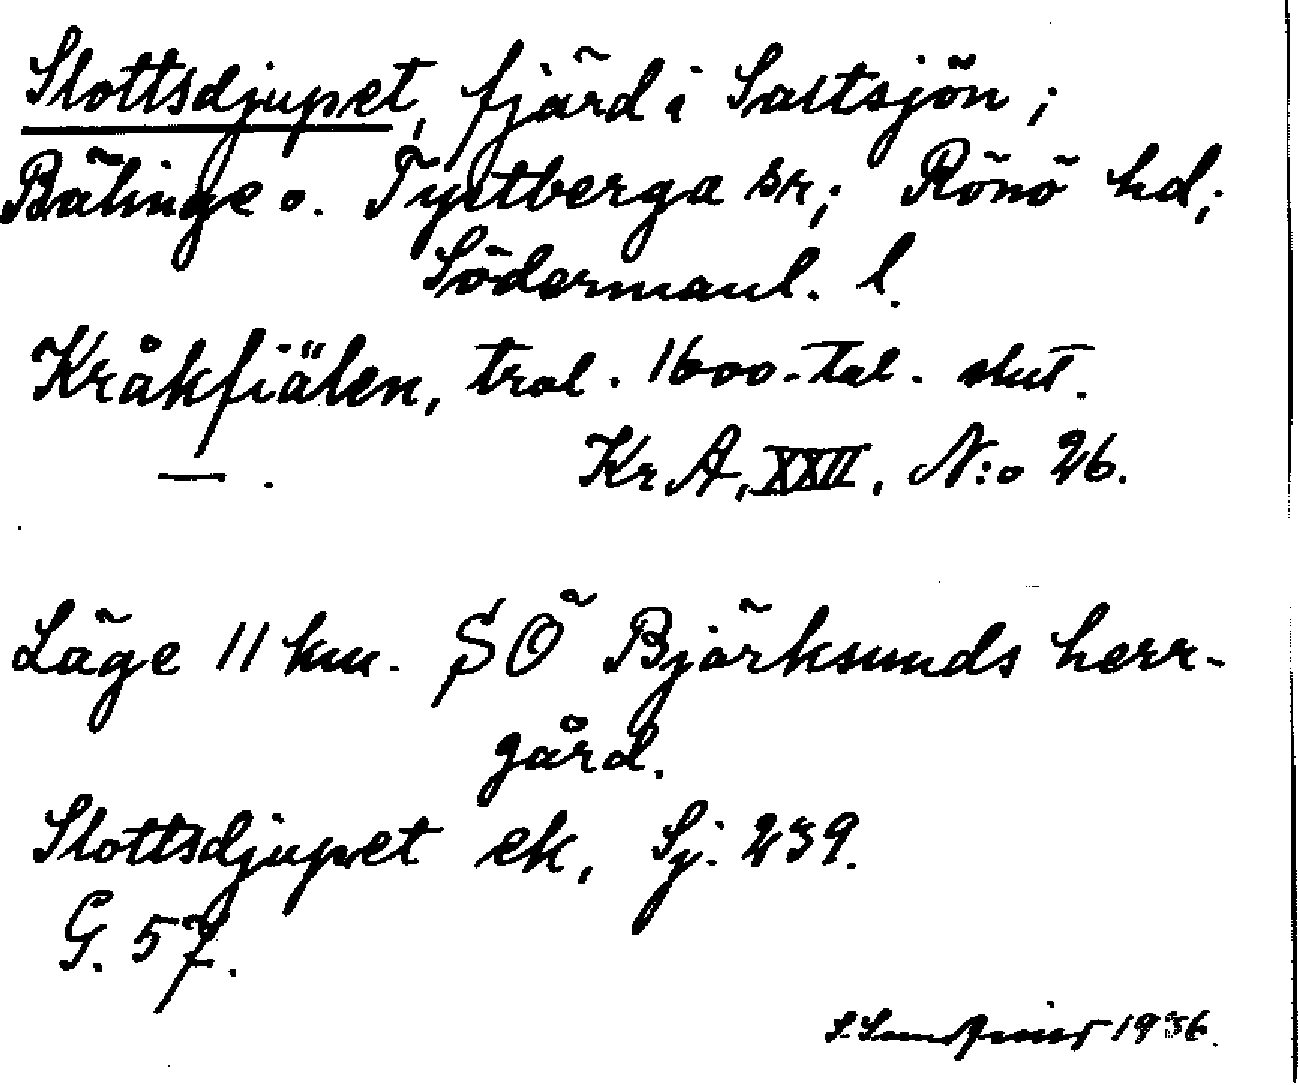 Slottsdjupet, fjärd i Saltsjön;
Bälinge o. Tystberga sn; Rönö hd;
Södermanl. l.
Kråkfiälen, trol. 1600-tal. slut.
— . Kr. A, XXII, N:o 26.
Läge 11 km. SÖ Björksunds herr-
gård.
Slottsdjupet ek, Sj. 239.
G. 57.
1936.